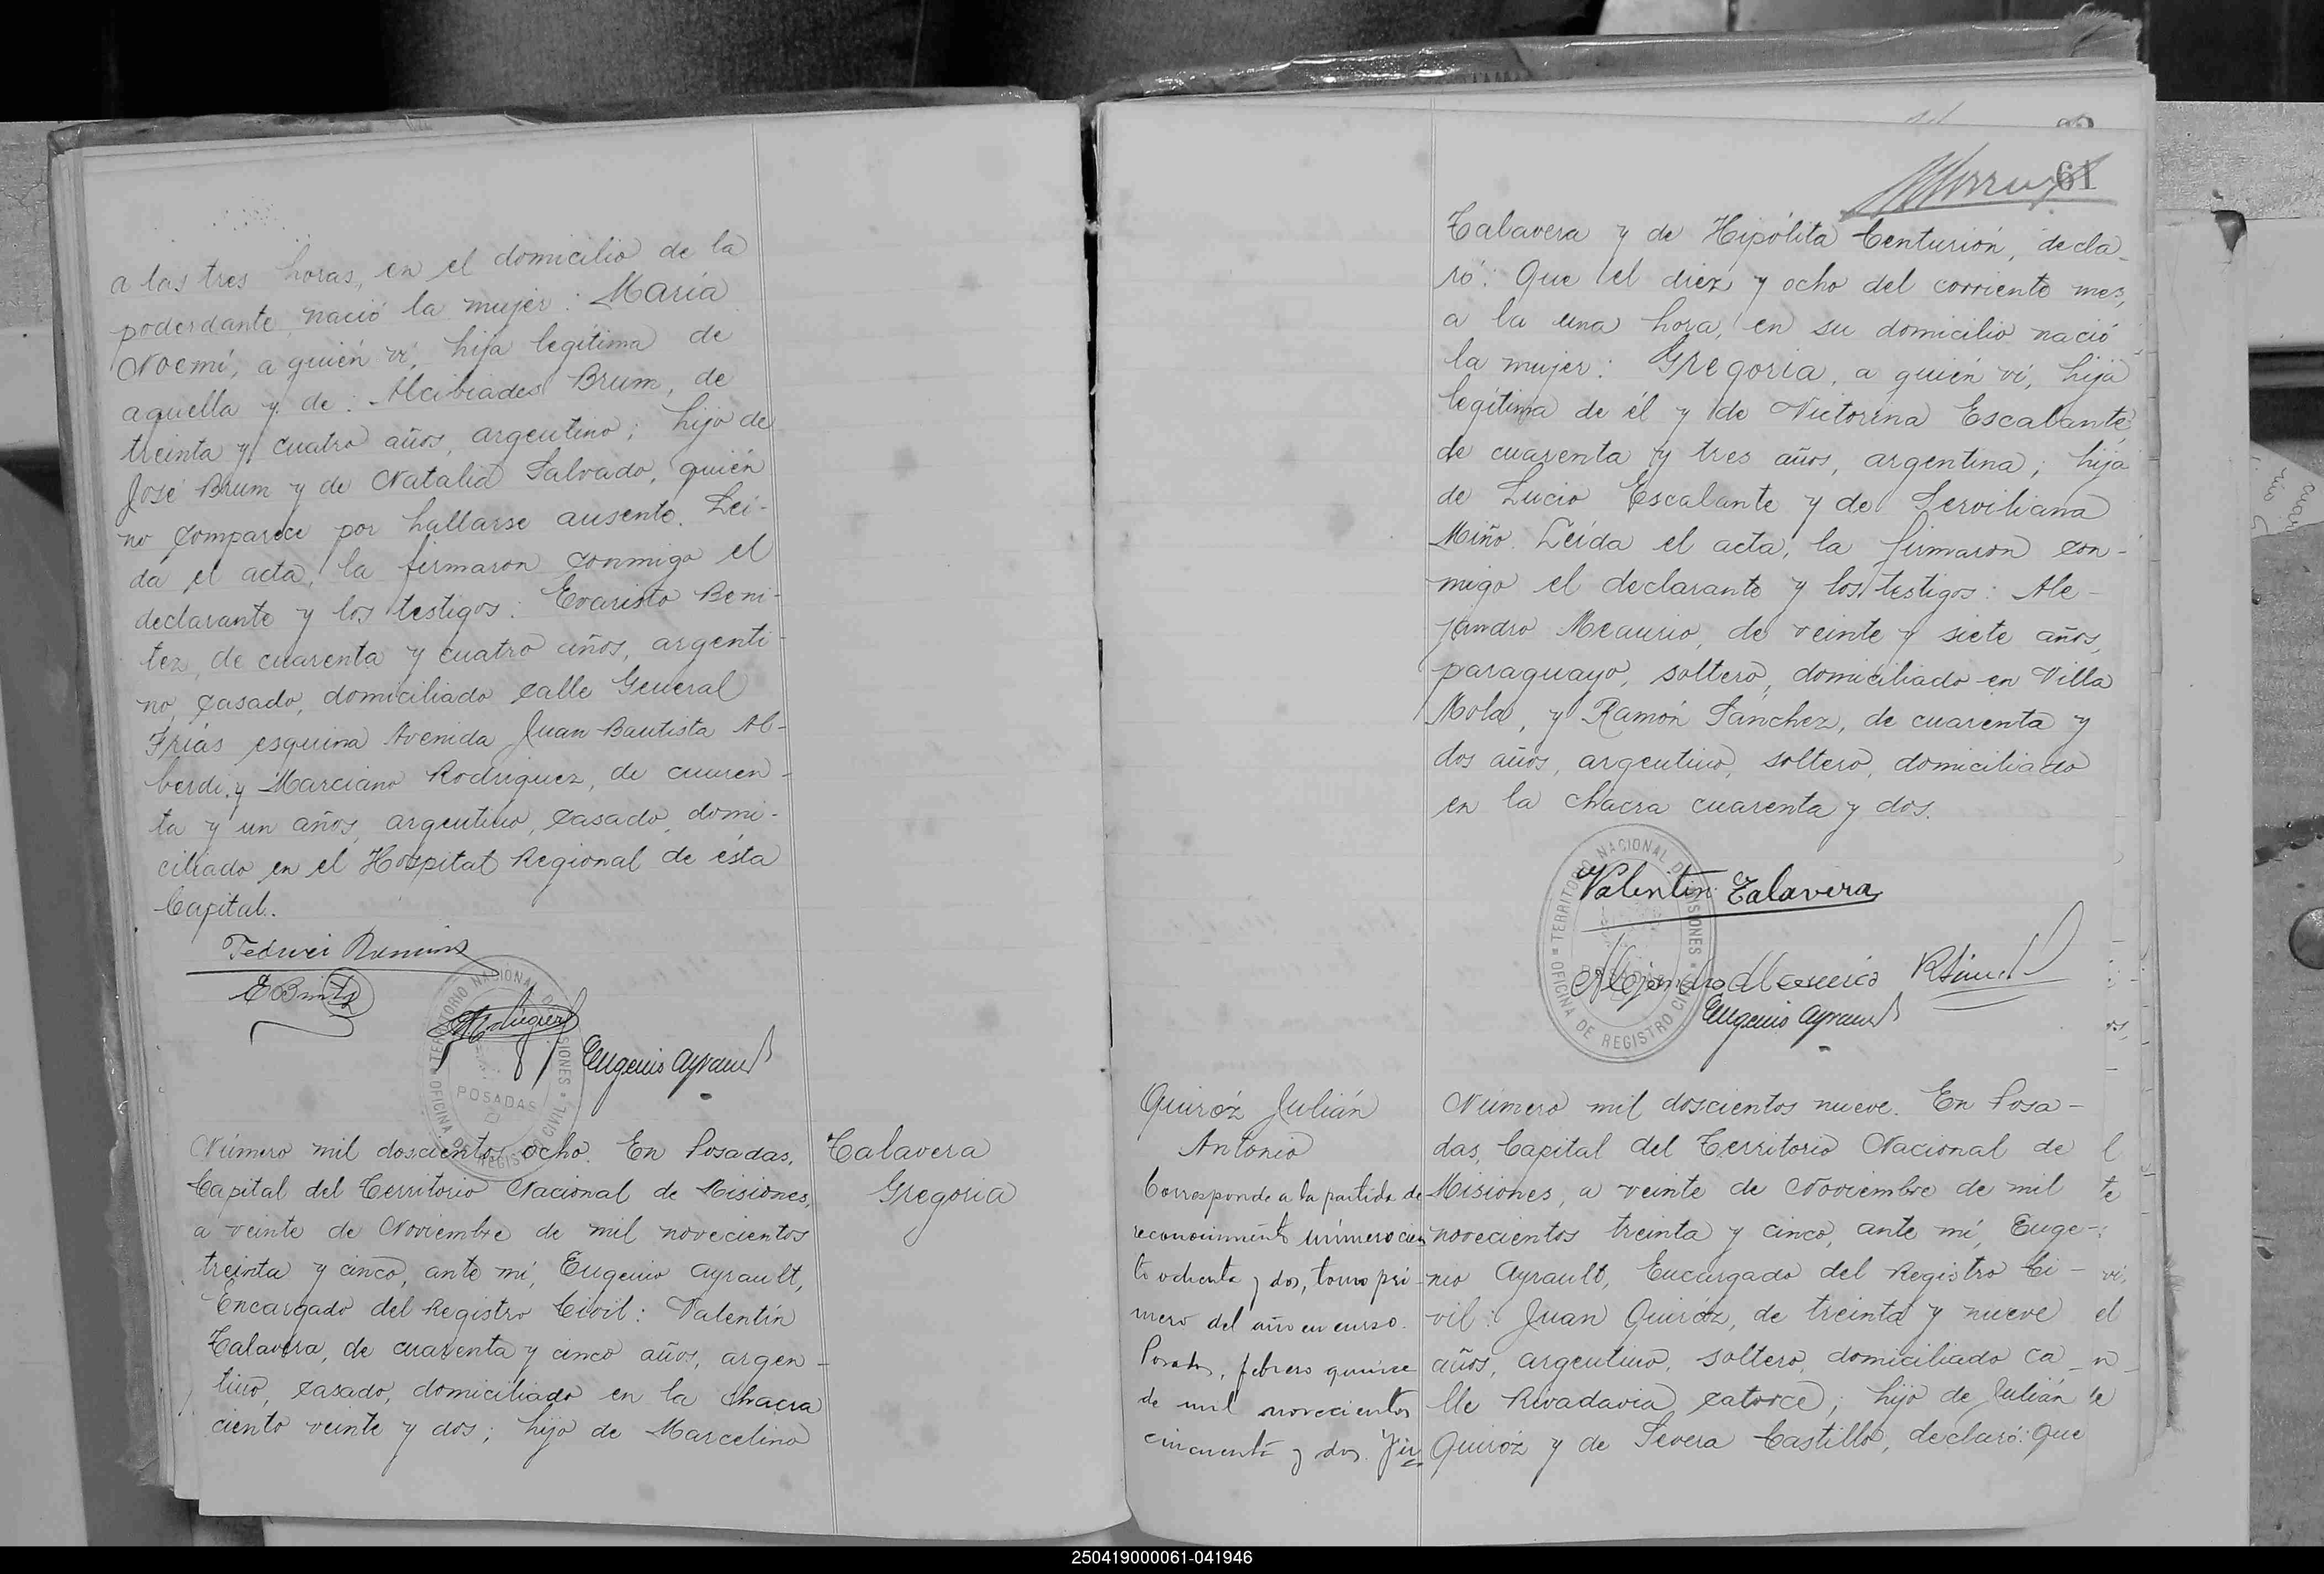 a las tres horas, en el domicilio de la
poderdante, nació la mujer: María
Noemí, a quién ví, hija legítima de
aquella y de: Alcibiades Brum, de
treinta y cuatro años, argentino; hijo de
José Brum y de Natalia Salvado, quién
no comparece por hallarse ausente. Leí-
da el acta, la firmaron conmigo el
declarante y los testigos: Evaristo Bení-
tez, de cuarenta y cuatro años, argenti-
no, casado, domiciliado calle General
Frías esquina Avenida Juan Bautista Al-
berdi, y Marciano Rodriguez, de cuaren-
ta y un años, argentino, casado, domi-
ciliado en el Hospital Regional de ésta
Capital.
Eugenio Ayrault
TERRITORIO NACIONAL DE MISIONES
OFICINA DE REGISTRO CIVIL
POSADAS
Talavera
Gregoria
Número mil doscientos ocho. En Posadas,
Capital del Territorio Nacional de Misiones,
a veinte de Noviembre de mil novecientos
treinta y cinco, ante mí, Eugenio Ayrault,
Encargado del Registro Civil: Valentín
Talavera, de cuarenta y cinco años, argen-
tino, casado, domiciliado en la chacra
ciento veinte y dos; hijo de Marcelino
61
Talavera y de Hipólita Centurión, decla-
ró: Que el diez y ocho del corriente mes,
a la una hora, en su domicilio nació
la mujer: Gregoria, a quién ví, hija
legítima de él y de Victorina Escalante,
de cuarenta y tres años, argentina; hija
de Lucio Escalante y de Serviliana
Miño. Leída el acta, la firmaron con-
migo el declarante y los testigos: Ale-
jandro Meaurio, de veinte y siete años,
paraguayo, soltero, domiciliado en Villa
Mola, y Ramón Sanchez, de cuarenta y
dos años, argentino, soltero, domiciliado
en la chacra cuarenta y dos.
Valentin Talavera
Alejandro Meaurio
Eugenio Ayrault
TERRITORIO NACIONAL DE MISIONES
OFICINA DE REGISTRO CIVIL
POSADAS
Quiróz Julián
Antonio
Corresponde a la partida de
reconocimiento número cien
to ochenta y dos, tomo pri-
mero del año en curso.
Posadas, febrero quince
de mil novecientos
cincuenta y dos.
Número mil doscientos nueve. En Posa-
das, Capital del Territorio Nacional de
Misiones, a veinte de Noviembre de mil
novecientos treinta y cinco, ante mí, Euge-
nio Ayrault, Encargado del Registro Ci-
vil: Juan Quiróz, de treinta y nueve
años, argentino, soltero, domiciliado ca-
lle Rivadavia catorce; hijo de Julián
Quiróz y de Severa Castillo, declaró: Que
250419000061-041946